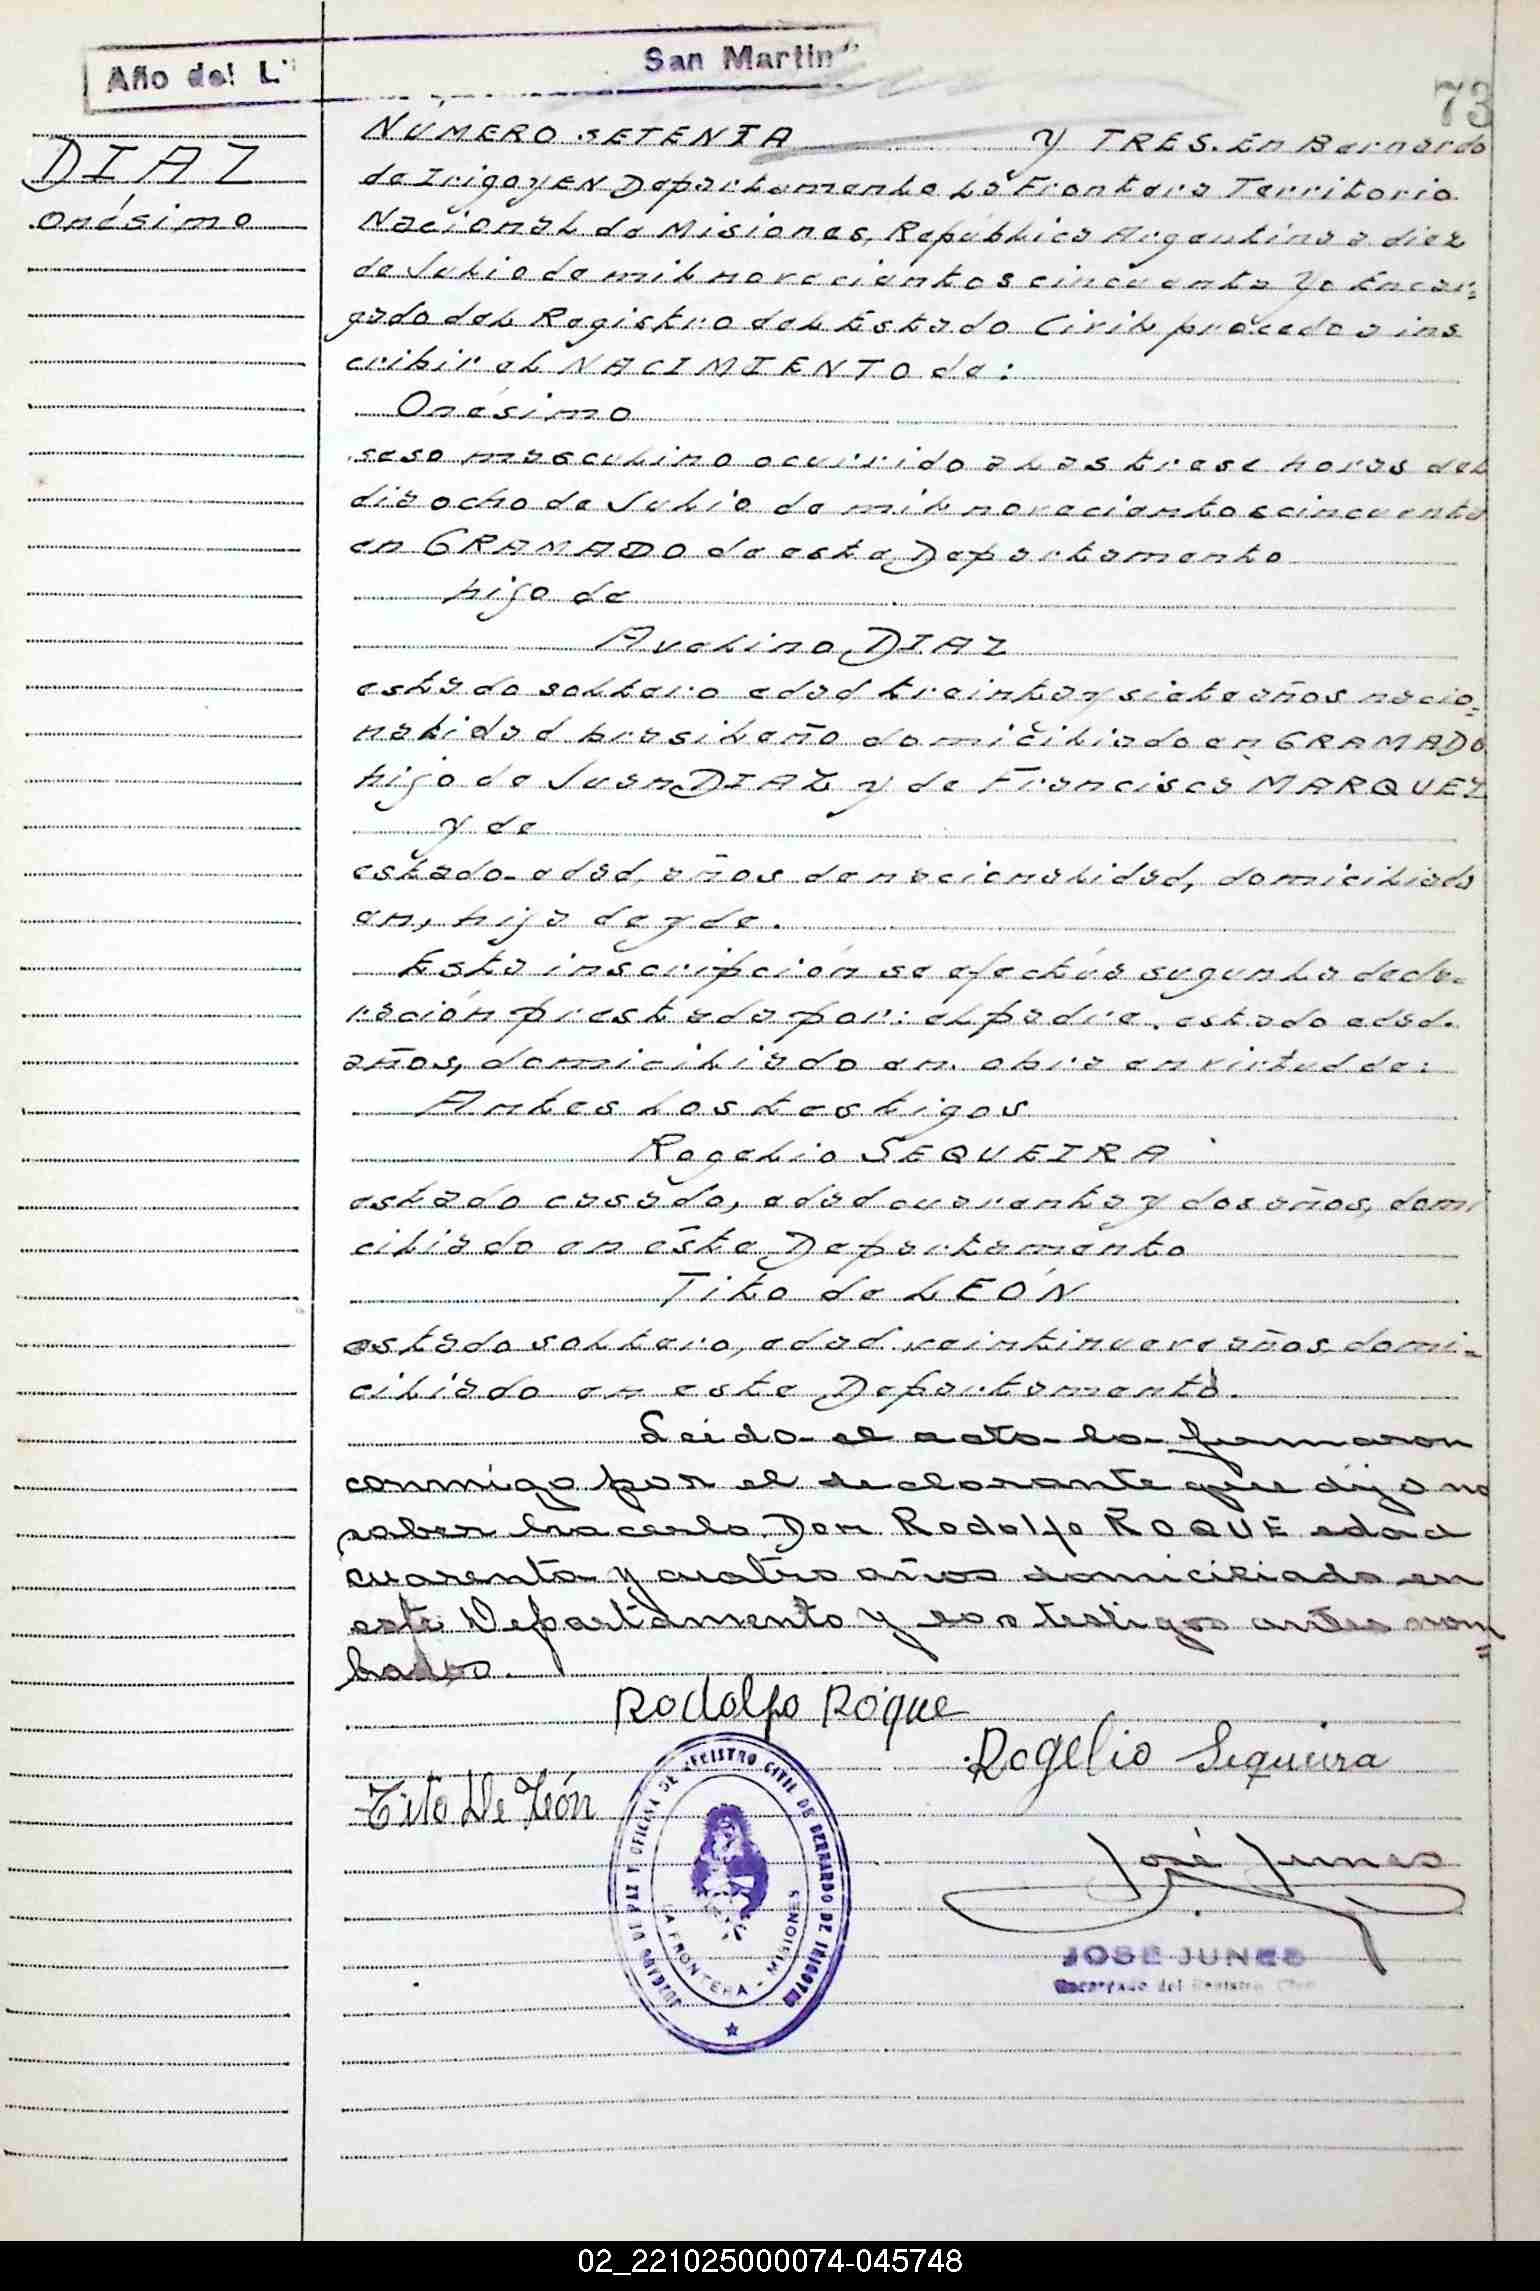 Año del L"
San Martin"
73
DIAZ
onésimo
NÚMERO SETENTA y TRES. En Bernardo
de IrigoyEN Departamento La Frontera Territorio
Nacional de Misiones, República Argentina a diez
de Julio de mil novecientos cincuenta Yo Encar=
gado del Registro del Estado Civil procedo a ins
cribir el NACIMIENTO de:
Onésimo
seso masculino ocurrido a las trese horas del
dia ocho de Julio de mil novecientos cincuenta
en GRAMADO de este Departamento
hijo de
Avelino DIAZ
estado soltero edad treinta y siete años nacio=
nalidad brasileño domiciliado en GRAMADO
hijo de Juan DIAZ y de Francisca MARQUEZ
y de
estado- edad, años de nacionalidad, domiciliada
en, hija de y de.
Esta inscripción se efectúa segun la decla-
ración prestada por: el padre. estado edad.
años, domiciliado en. obra en virtud de:
Antes los testigos
Rogelio SEQUEIRA
estado casado, edad cuarenta y dos años, domi
ciliado en éste Departamento
Tito de LEÓN
estado soltero, edad veintinueve años domi-
ciliado en este Departamento.
Leido el acta la firmaron
conmigo por el declarante que dijo no
saber hacerlo Don Rodolfo ROQUE edad
cuarenta y cuatro años domiciliado en
este Departamento y los testigos antes nom=
brados.
Rodolfo Roque
Rogelio Sequeira
Tito De León
José Junes
JUZGADO DE PAZ Y OFICINA DE REGISTRO CIVIL DE BERNARDO DE IRIGOYEN
LA FRONTERA - MISIONES
JOSE JUNES
Encargado del Registro Civil
02_221025000074-045748